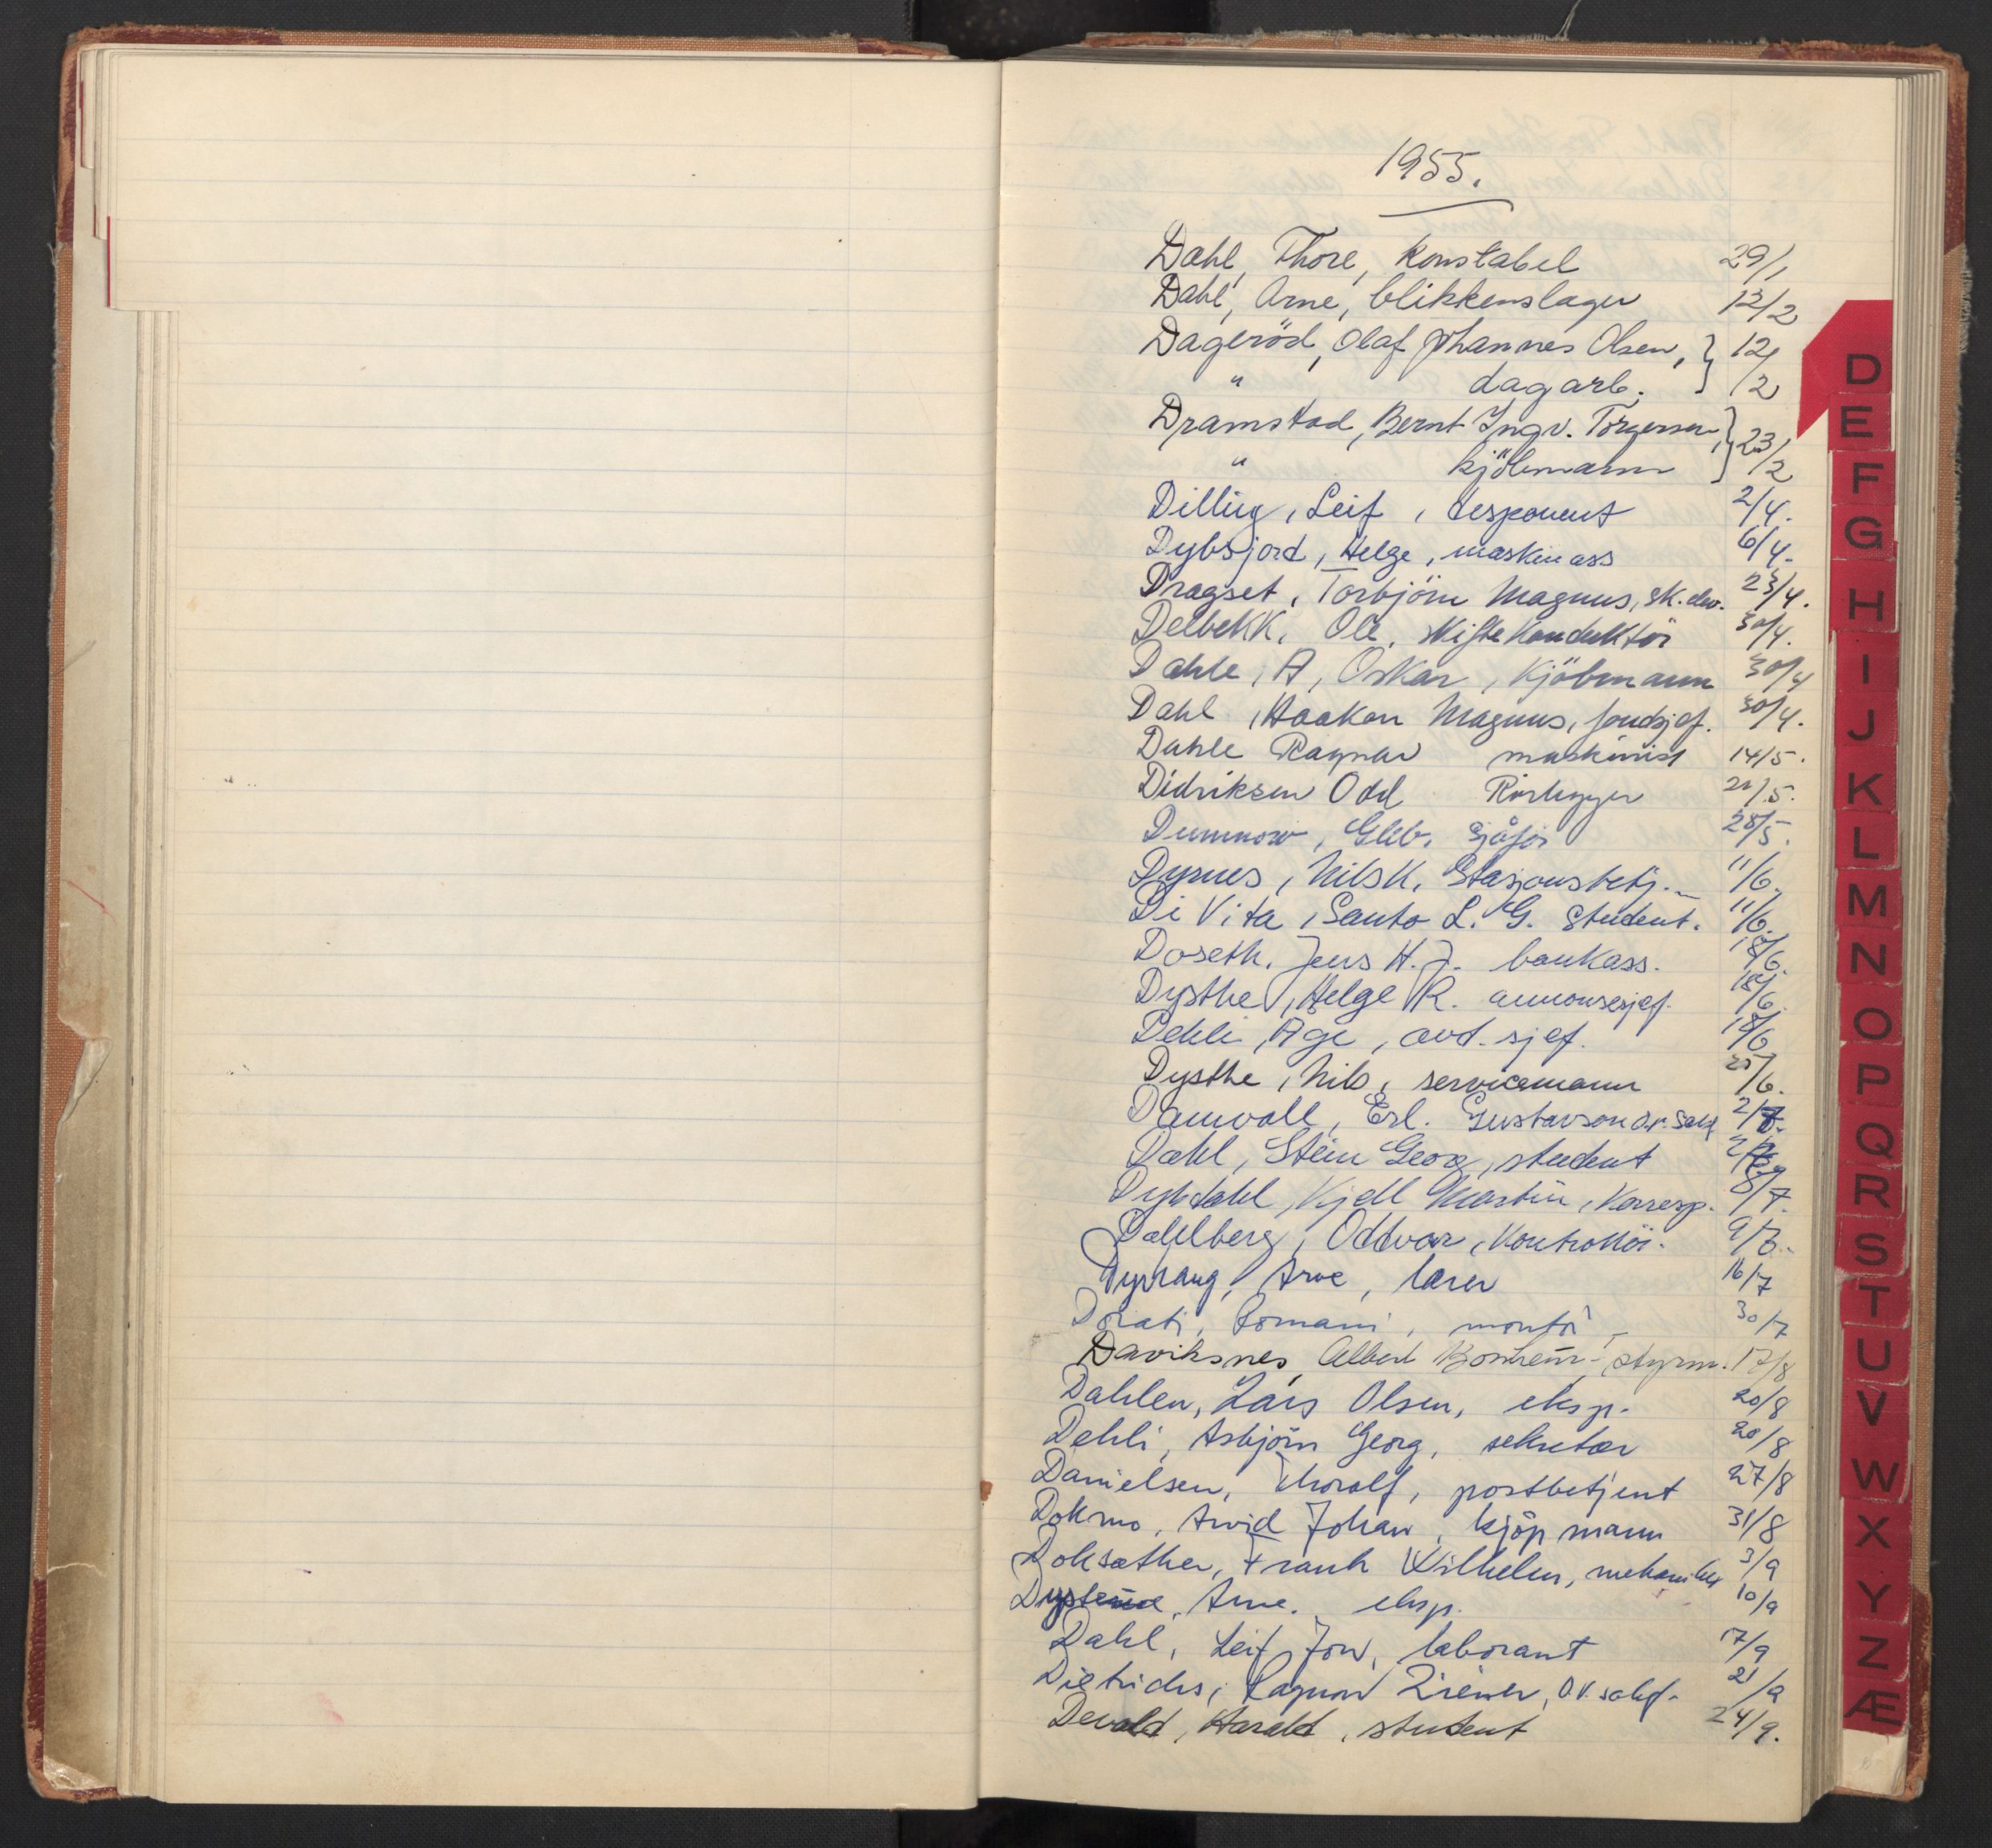 1955.
Dahl, Thore, konstabel 29/1
Dahl, Arne, blikkenslager 12/2
Dageröd, Olaf Johannes Olsen, } 12/2
" dagarb.
Dramstad, Bernt Ingv. Torgersen, } 23/2
" kjöbmann
Dillig, Leif, disponent 2/4.
Dybsjord, Helge, maskinass 6/4.
Dragset, Torbjörn Magnus, sk. elev. 23/4.
Delbekk, Ole, skiftekonduktör 30/4.
Dahle, A, Oskar, kjöbmann 30/4
Dahl, Haakon Magnus, fondsjef. 30/4.
Dahle Ragnar maskinist 14/5.
Didriksen Odd Rörlegger 21/5.
Gleb, sjåför 28/5.
Dyrnes, Nils K. Stasjonsbetj. 11/6.
Di Vita, Santo L. G. student. 11/6.
Doseth, Jens H. J. bankass. 18/6.
Dysthe, Helge R. annonsesjef. 18/6.
Dehli, Åge, avd. sjef. 18/6
Dysthe, Nils, servicemann 25/6.
Damvoll, Erl. Gustavson o.r. sakf 2/7.
Dahl, Stein Georg, student 2/7
Dybdahl, Kjell Martin, korresp. 8/7.
Dahlberg, Oddvar, kontrollör. 9/7.
Dyrhaug, Arve, lærer 16/7
Dorati, Romani, montör 30/7
Daviksnes, Albert styrm. 17/8
Dahlen, Lars Olsen, eksp. 20/8
Dehli, Asbjörn Georg, sekretær 20/8
Danielsen, Thoralf, postbetjent 27/8
Dokmo, Arvid Johan, kjöpmann 31/8
Doksæther, Frank Wilhelm, mekaniker 3/9
Arne. eksp. 10/9
Dahl, Leif Jon, laborant 17/9
Dietrichs, Ragnar Ziener, O.r. sakf. 21/9
Devold, Harald, student 24/9.
D
E
F
G
H
I
J
K
L
M
N
O
P
Q
R
S
T
U
V
W
X
Y
Z
Æ